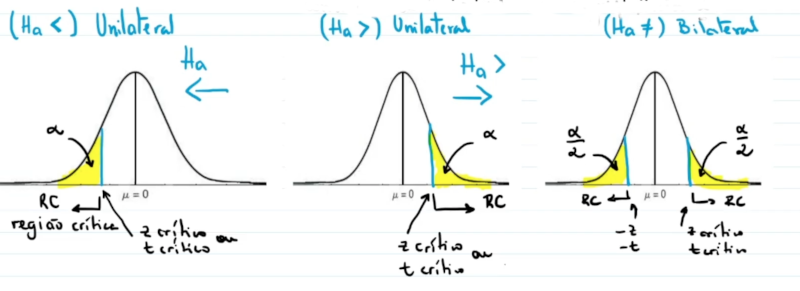 (Ha <) Unilateral
Ha
α
μ = 0
RC
região crítica
z crítico ou
t crítico
(Ha >) Unilateral
Ha >
α
μ = 0
RC
z crítico ou
t crítico
(Ha ≠) Bilateral
α/2
α/2
μ = 0
RC
RC
-z
-t
z crítico
t crítico